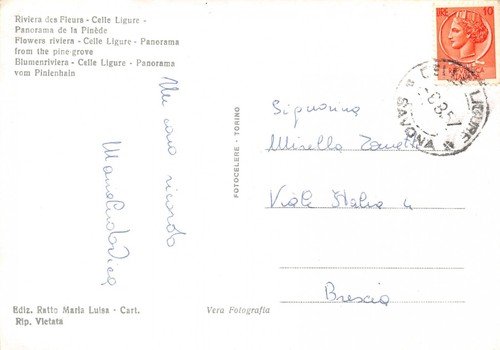 Riviera des Fleurs - Celle Ligure -
Panorama de la Pinède
Flowers riviera - Celle Ligure - Panorama
from the pine-grove
Blumenriviera - Celle Ligure - Panorama
vom Pinienhain
Un caro ricordo
Maria Ludovica
Ediz. Ratto Maria Luisa - Cart.
Rip. Vietata
Vera Fotografia
FOTOCELERE - TORINO
LIRE 10
CELLE LIGURE
SAVONA
Signorina
Mirella Zanetti
Viale Italia 4
Brescia